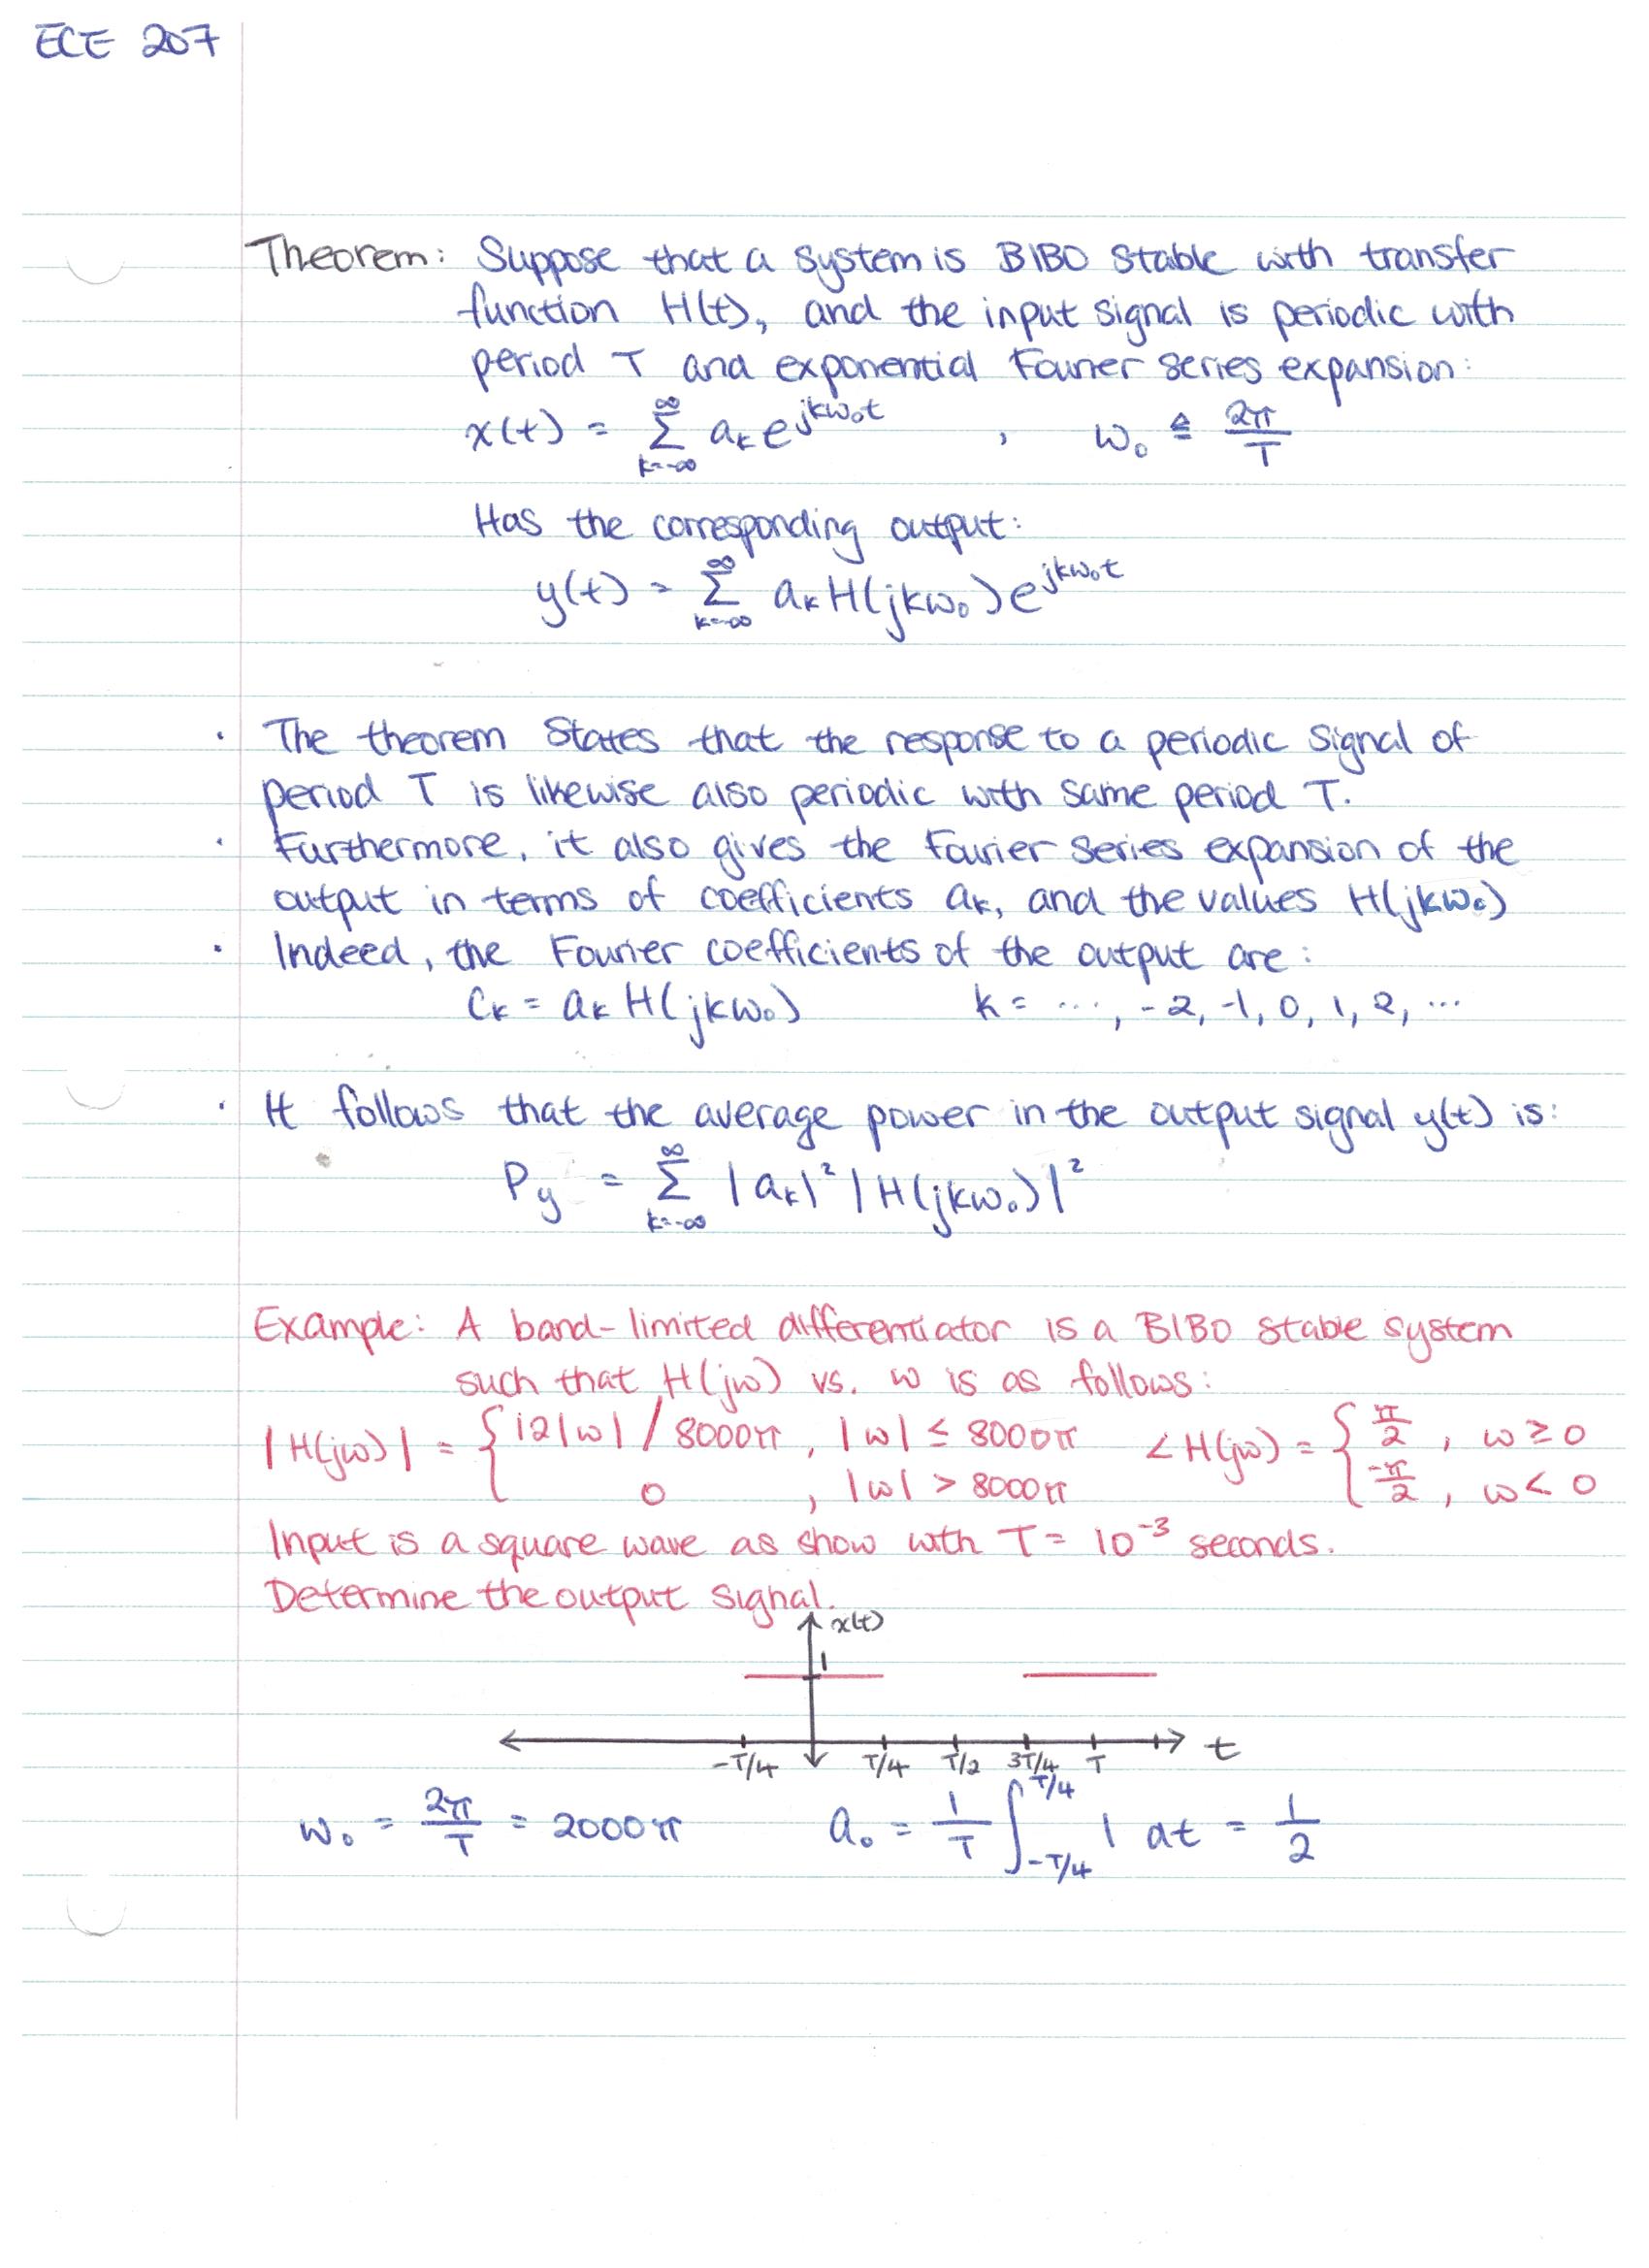 ECE 207
Theorem: Suppose that a system is BIBO stable with transfer
function H(t), and the input signal is periodic with
period T and exponential Fourier series expansion:
x(t) = ∑_{k=-∞}^{∞} a_k e^{jkω₀t} , ω₀ ≜ 2π/T
Has the corresponding output:
y(t) = ∑_{k=-∞}^{∞} a_k H(jkω₀) e^{jkω₀t}
· The theorem states that the response to a periodic signal of
period T is likewise also periodic with same period T.
· Furthermore, it also gives the Fourier series expansion of the
output in terms of coefficients a_k, and the values H(jkω₀)
· Indeed, the Fourier coefficients of the output are:
C_k = a_k H(jkω₀) k = ..., -2, -1, 0, 1, 2, ...
· It follows that the average power in the output signal y(t) is:
P_y = ∑_{k=-∞}^{∞} |a_k|² |H(jkω₀)|²
Example: A band-limited differentiator is a BIBO stable system
such that H(jω) vs. ω is as follows:
|H(jω)| = { 12|ω| / 8000π , |ω| ≤ 8000π ∠H(jω) = { π/2 , ω ≥ 0
0 , |ω| > 8000π -π/2 , ω < 0
Input is a square wave as show with T = 10⁻³ seconds.
Determine the output signal.
x(t)
1
-T/4 T/4 T/2 3T/4 T t
ω₀ = 2π/T = 2000π a₀ = 1/T ∫_{-T/4}^{T/4} 1 dt = 1/2